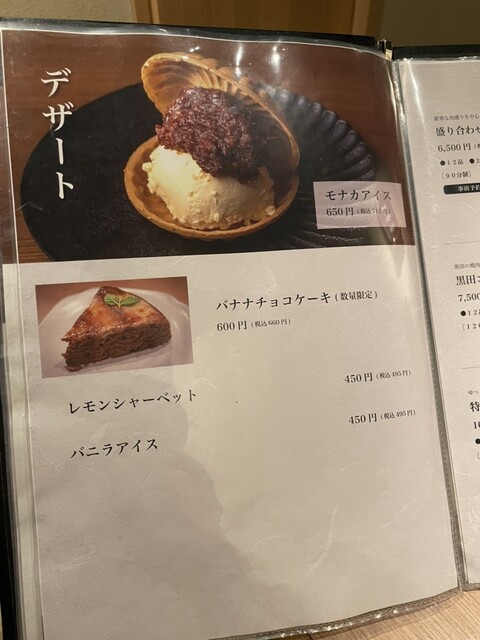 デザート
モナカアイス
650円(税込715円)
バナナチョコケーキ(数量限定)
600円(税込660円)
450円(税込495円)
レモンシャーベット
450円(税込495円)
バニラアイス
盛り合わせ
6,500円
●12品
[90分制]
黒田
7,500
●12
特